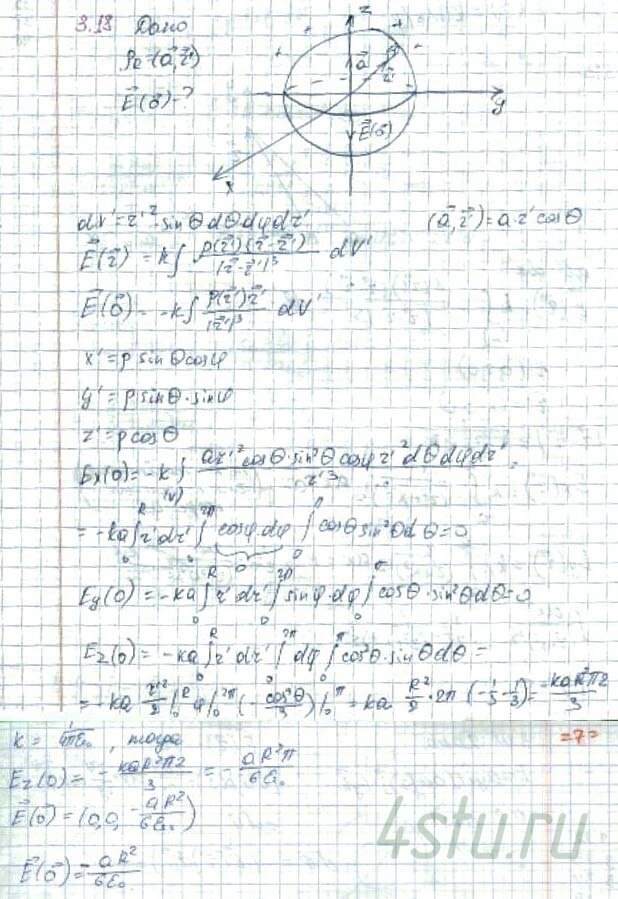 3.13 Дано
ρ = (a⃗, r⃗)
E⃗(o⃗) - ?
z
a⃗
r⃗
y
E⃗(o⃗)
x
dV' = r'² sinθ dθ dφ dr'
(a⃗, r⃗') = a·r' cosθ
E⃗(r⃗) = k∫ ρ(r⃗')(r⃗-r⃗')/|r⃗-r⃗'|³ dV'
E⃗(o⃗) = -k∫ ρ(r⃗')r⃗'/|r⃗'|³ dV'
x' = ρ sinθ cosφ
y' = ρ sinθ · sinφ
z' = ρ cosθ
Ex(0) = -k ∫(V) ar'² cosθ · sin²θ cosφ r'² dθ dφ dr'/r'³ =
= -ka ∫₀ᴿ r' dr' ∫₀²π cosφ dφ ∫₀ cosθ sin²θ dθ = 0
0
Ey(0) = -ka ∫₀ᴿ r' dr' ∫₀²π sinφ · dφ ∫₀π cosθ · sin²θ dθ = 0
Ez(0) = -ka ∫₀ᴿ r' dr' ∫₀²π dφ ∫₀π cos²θ · sinθ dθ =
= -ka r'²/2 |₀ᴿ φ|₀²π (-cos³θ/3)|₀π = ka R²/2 · 2π (-1/3 - 1/3) = -kaR²π2/3
k = 1/4πε₀, тогда
=7=
Ez(0) = - kaR²π2/3 = - aR²π/6ε₀
E⃗(o⃗) = (0, 0, - aR²/6ε₀)
E⃗(o⃗) = - aR²/6ε₀
4stu.ru